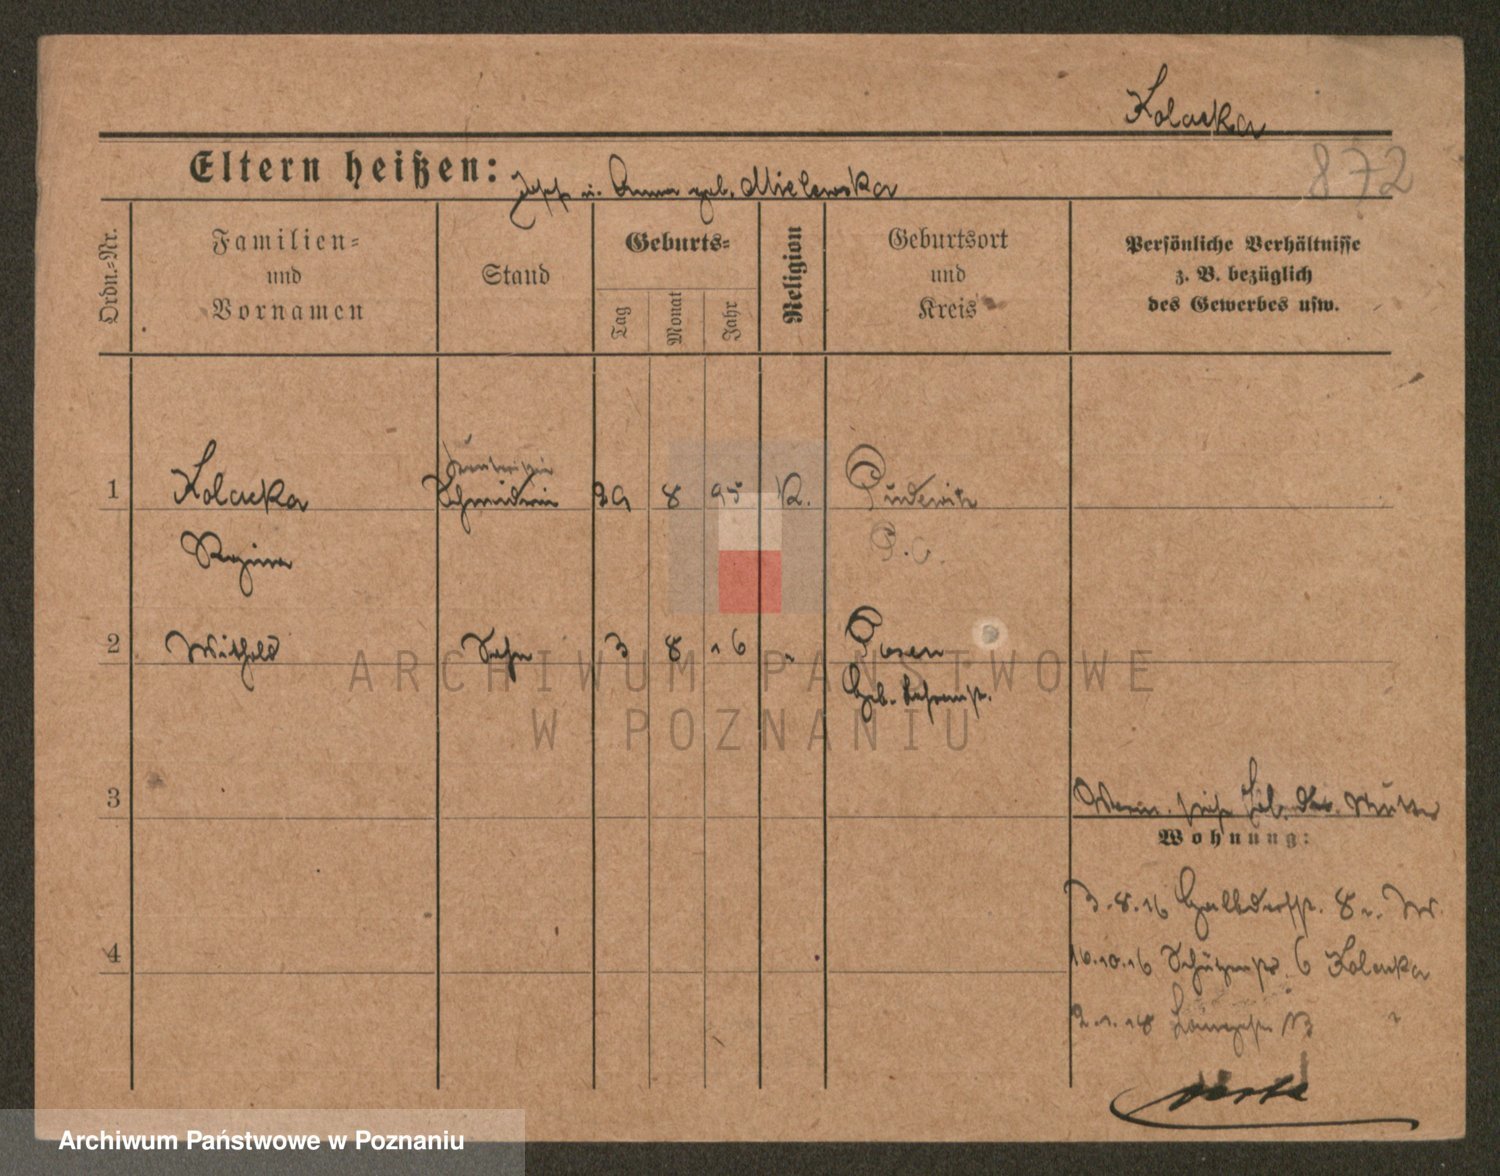 Kolacka
872
Eltern heißen: Josef u. Anna geb. Mielewska
Ordn.-Nr.
Familien- und Vornamen
Stand
Geburts-
Tag
Monat
Jahr
Religion
Geburtsort und Kreis
Persönliche Verhältnisse
z. B. bezüglich
des Gewerbes usw.
1 Kolacka Schneiderin 29 8 95 K. Pudewitz
Regina P.O.
2 Withold Sohn 3 8 16 " Posen
Geb. Lehranst.
3
Mutter
Wohnung:
3.8.16 8
4
10.10.16 Schützenstr. 6 Kolacka
2.1.18 13 "
ARCHIWUM PAŃSTWOWE
W POZNANIU
Archiwum Państwowe w Poznaniu